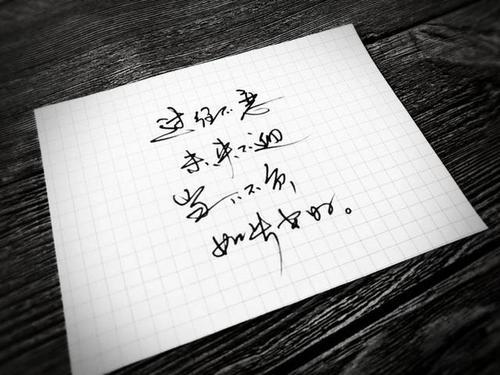 过往不恋
未来不迎
当下不负
如此安好。